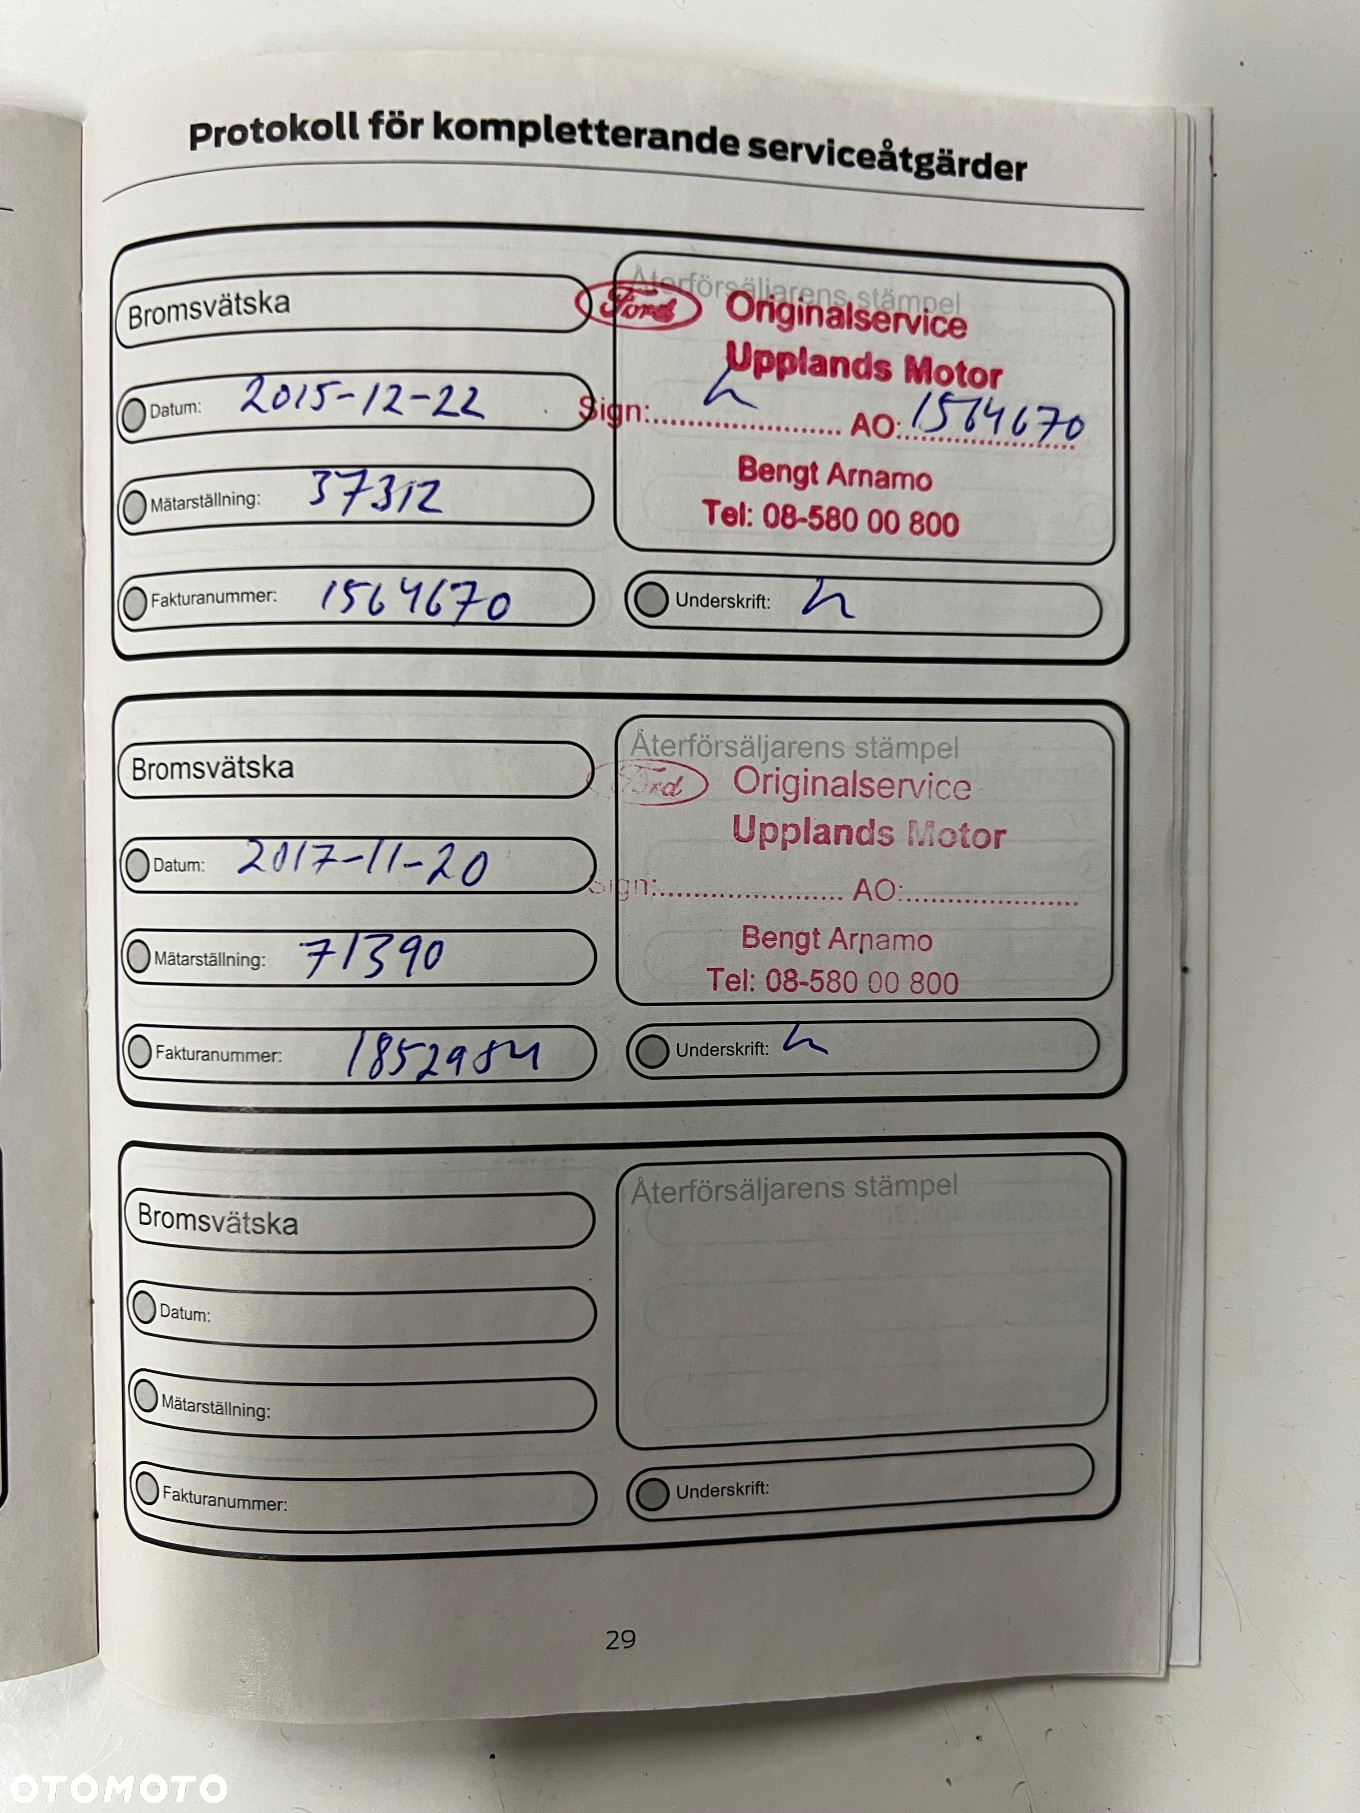 Protokoll för kompletterande serviceåtgärder
Bromsvätska
Datum: 2015-12-22
Mätarställning: 37312
Fakturanummer: 1564670
Återförsäljarens stämpel
Ford Originalservice
Upplands Motor
Sign:........................ AO: 1564670
Bengt Arnamo
Tel: 08-580 00 800
Underskrift:
Bromsvätska
Datum: 2017-11-20
Mätarställning: 71390
Fakturanummer: 1852984
Återförsäljarens stämpel
Ford Originalservice
Upplands Motor
Sign:........................ AO:........................
Bengt Arnamo
Tel: 08-580 00 800
Underskrift:
Bromsvätska
Datum:
Mätarställning:
Fakturanummer:
Återförsäljarens stämpel
Underskrift:
29
OTOMOTO